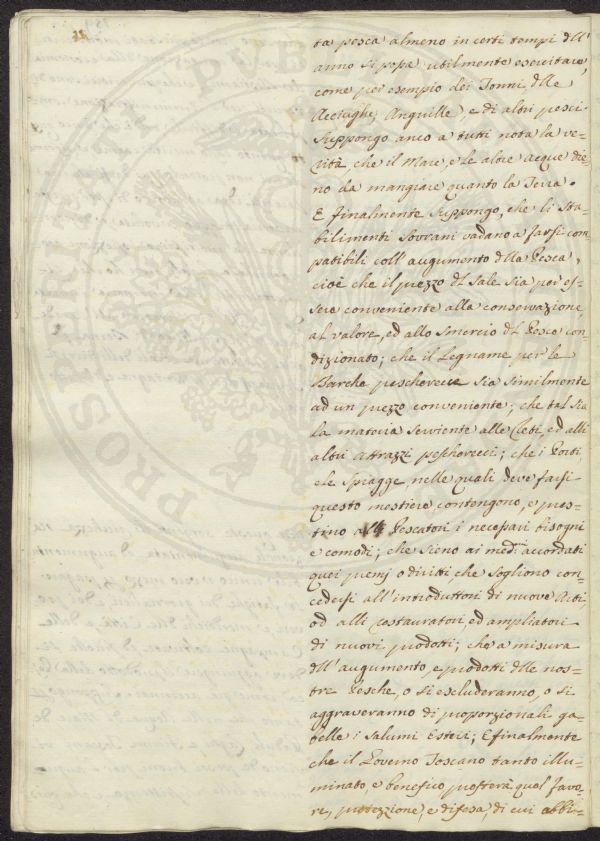 ta pesca almeno in certi tempi dll'
anno si possa utilmente esercitare,
come per esempio dei Tonni, dlle
Acciughe, Anguille, e di altri pesci.
Suppongo anco a tutti nota la ve=
rità, che il Mare, e le altre acque die=
no da mangiare quanto la Terra.
E finalmente suppongo, che li Sta=
bilimenti Sovrani vadano a farsi com=
patibili coll' augumento dlla Pesca,
cioè che il prezzo dl Sale sia per es=
sere conveniente alla conservazione,
al valore, ed allo smercio dl Pesce con=
dizionato; che il Legname per le
Barche pescherecce sia similmente
ad un prezzo conveniente; che tal sia
la materia serviente alle Reti, ed alli
altri Attrazzi peschereccj; che i Porti,
e le Spiagge, nelle quali deve farsi
questo mestiere contengono, e pres=
tino alli Pescatori i necessarj bisogni
e comodi; che sieno ai med.mi accordati
quei premj o diritti che sogliono con=
cedersi all'introduttori di nuove Arti,
od alli restauratori, ed ampliatori
di nuovi prodotti; che a misura
dll' augumento, e prodotti dlle nos=
tre Pesche, o si escluderanno, o si
aggraveranno di proporzionali ga=
belle i Salumi Esteri; E finalmente
che il Governo Toscano tanto illu=
minato, e benefico presterà quel favo=
re, protezzione, e difesa, di cui abbi=
PROSPERITÀ PUBB